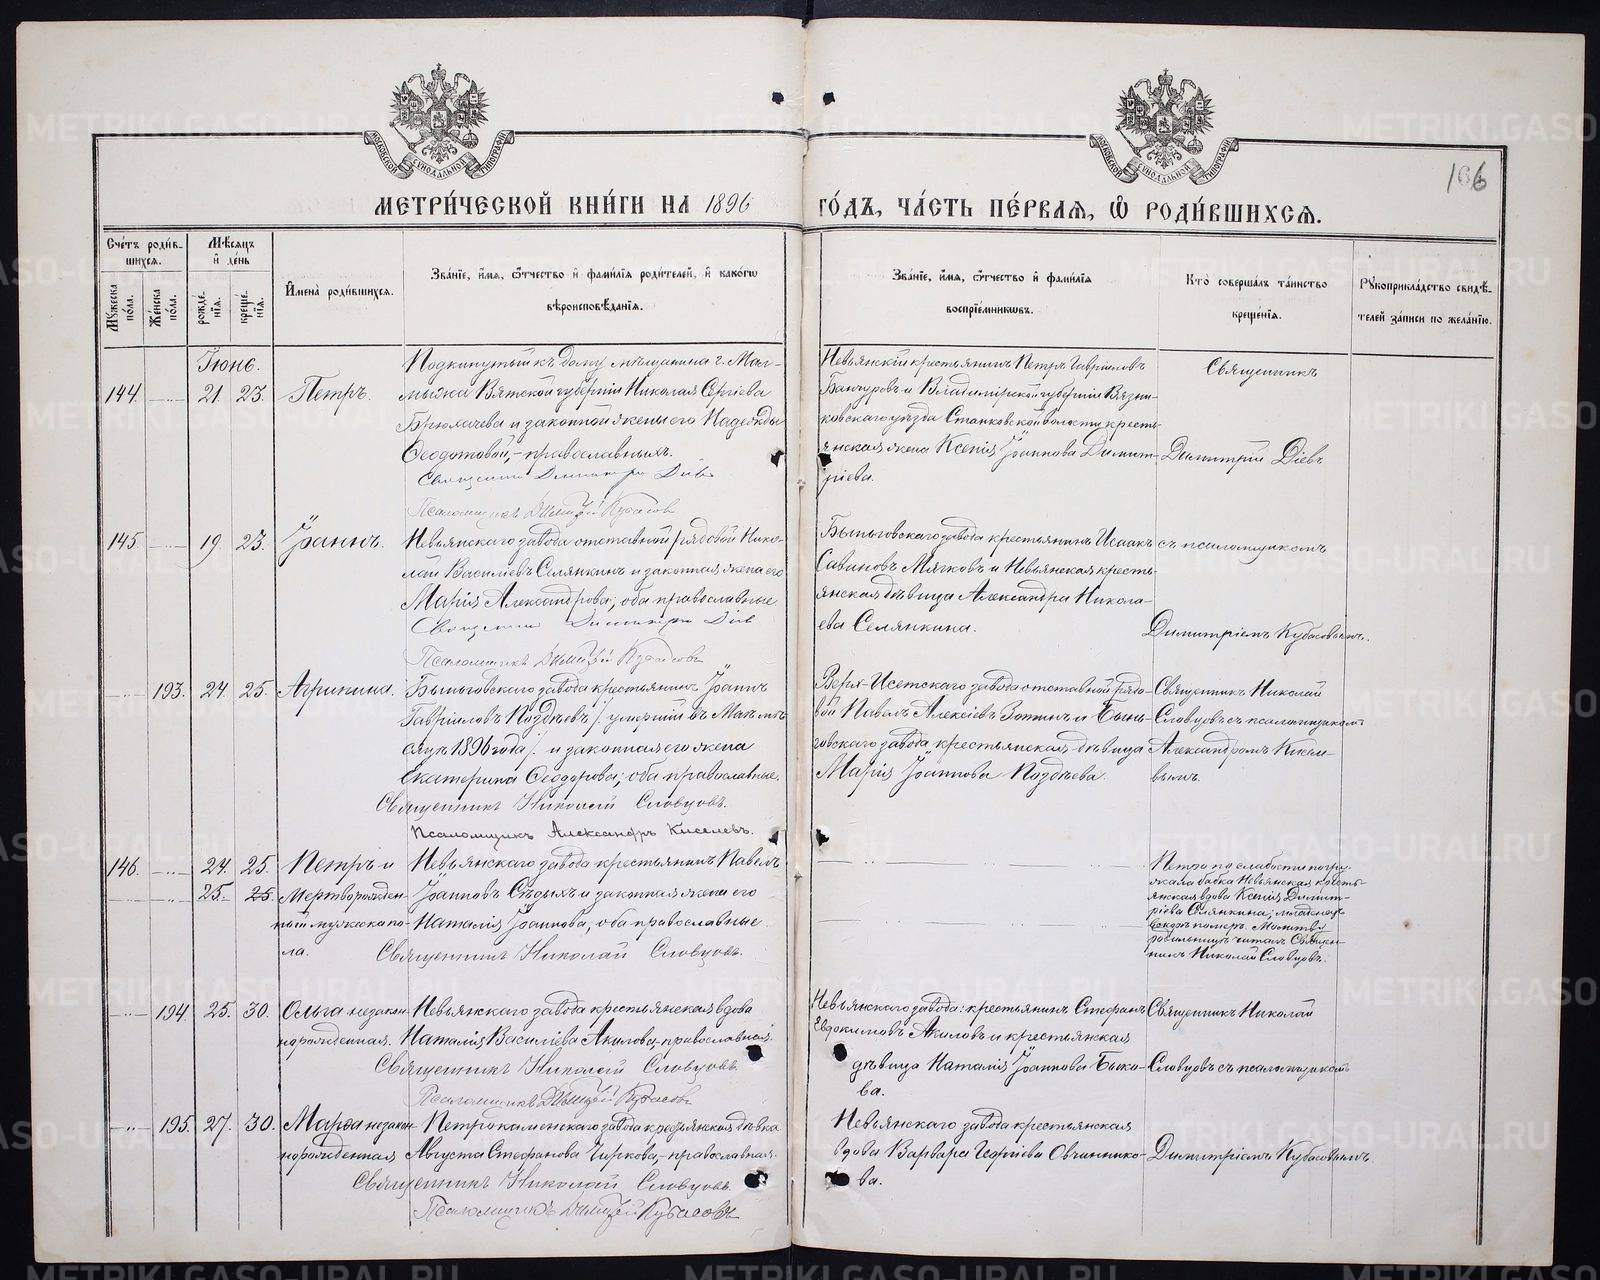 МЕТРИ́ЧЕСКОЙ КНИ́ГИ НА 1896
ГО́ДЪ, ЧА́СТЬ ПЕ́РВАЯ, Ѽ РОДИ́ВШИХСЯ.
166
Сче́тъ роди́в-
шихся.
Му́жеска по́ла.
Же́нска по́ла.
Мѣ́сяцъ и де́нь
рожде́-
нія.
креще́-
нія.
И҆мена̀ роди́вшихся.
Зва́нїе, и҆́мя, ѻ҆́тчество и҆ фами́лїѧ роди́телей, и҆ како́гѡ
вѣроисповѣ́данїѧ.
Зва́нїе, и҆́мя, ѻ҆́тчество и҆ фами́лїѧ
воспрїе́мникѡвъ.
Кто̀ соверша́лъ та́инство
креще́нїѧ.
Рꙋкоприкла́дство свидѣ́-
телей за́писи по жела́нїю.
Іюнь.
144. 21. 23. Петръ.
Подкинутый къ дому мѣщанина г. Мал-
мыжа Вятской губерніи Николая Сергіева
Брюхачева и законной жены его Надежды
Ѳеодотовой, - православныхъ.
Священникъ Димитрій Діевъ
Псаломщикъ Димитрій Кубасовъ
Невьянскій крестьянинъ Петръ Гавріиловъ
и Владимірской губерніи Вязни-
ковскаго уѣзда Станковской волости кресть-
янская жена Ксенія Іоаннова Димит-
ріева.
Священникъ
Димитрій Діевъ
145. 19. 23. Іоаннъ.
Невьянскаго завода отставной рядовой Нико-
лай Василіевъ Селянкинъ и законная жена его
Марія Александрова; оба православные
Священникъ Димитрій Діевъ
Псаломщикъ Димитрій Кубасовъ
Быньговскаго завода крестьянинъ Исаакъ
Саввиновъ Мягковъ и Невьянская кресть-
янская дѣвица Александра Никола-
ева Селянкина.
съ псаломщикомъ
Димитріемъ Кубасовымъ.
193. 24. 25. Агрипина.
Быньговскаго завода крестьянинъ Іоаннъ
Гавріиловъ Поздѣевъ /: умершій въ Маѣ мѣ-
сяцѣ 1896 года :/ и законная его жена
Екатерина Ѳеодорова; оба православные.
Священникъ Николай Словцовъ.
Псаломщикъ Александръ Киселевъ.
Верхъ-Исетскаго завода отставной рядо-
вой Павелъ Алексіевъ Зотинъ и Бынь-
говскаго завода крестьянская дѣвица
Марія Іоаннова Поздѣева
Священникъ Николай
Словцовъ съ псаломщикомъ
Александромъ Кисел-
вымъ.
146. 24. 25. Петръ и
25. 25. Мертворожден-
ный мужска по-
ла.
Невьянскаго завода крестьянинъ Павелъ
Іоанновъ Сѣдыхъ и законная жена его
Наталія Іоаннова, оба православные.
Священникъ Николай Словцовъ.
Петра по слабости погру-
жала бабка Невьянская кресть-
янская вдова Ксенія Димит-
ріева Селянкина; младенецъ
вскорѣ померъ. Молитвы
родильницѣ читалъ Священ-
никъ Николай Словцовъ.
194. 25. 30. Ольга незакон-
норожденная.
Невьянскаго завода крестьянская вдова
Наталія Василіева Акилова, - православная.
Священникъ Николай Словцовъ.
Псаломщикъ Димитрій Кубасовъ
Невьянскаго завода: крестьянинъ Стефанъ
Евдокимовъ Акиловъ и крестьянская
дѣвица Наталія Іоаннова Быко-
ва.
Священникъ Николай
Словцовъ съ псаломщикомъ
195. 27. 30. Марѳа незакон-
норожденная
Петрокаменскаго завода крестьянская дѣвка
Августа Стефанова Чиркова, - православная.
Священникъ Николай Словцовъ.
Псаломщикъ Димитрій Кубасовъ
Невьянскаго завода крестьянская
вдова Варвара Георгіева Овчиннико-
ва.
Димитріемъ Кубасовымъ.
METRIKI.GASO-URAL.RU